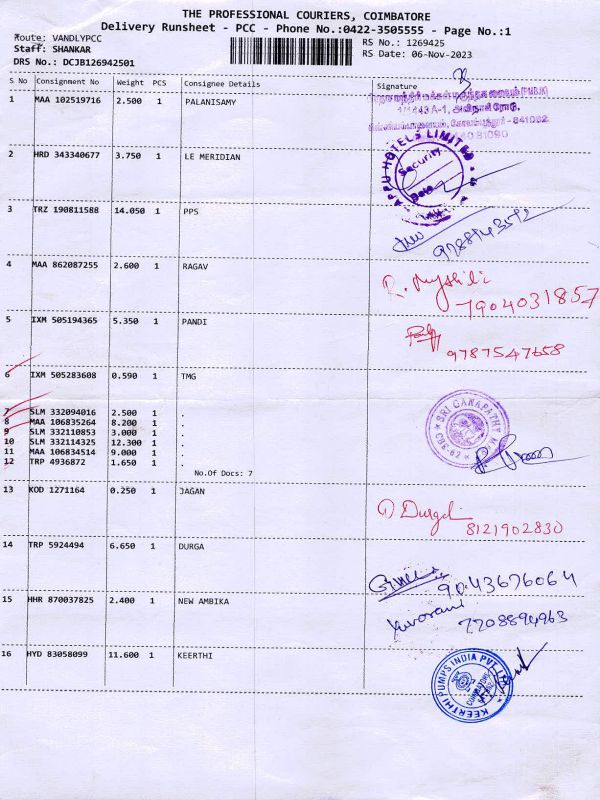 THE PROFESSIONAL COURIERS, COIMBATORE
Delivery Runsheet - PCC - Phone No.:0422-3505555 - Page No.:1
Route: VANDLYPCC
RS No.: 1269425
Staff: SHANKAR
RS Date: 06-Nov-2023
DRS No.: DCJB126942501
S No Consignment No Weight PCS Consignee Details Signature
1 MAA 102519716 2.500 1 PALANISAMY
(PMBJK)
1/1443 A-1, அவிநாசி ரோடு,
- 641062
2 HRD 343340677 3.750 1 LE MERIDIAN
APPU HOTELS LIMITED
Security
Date
3 TRZ 190811588 14.050 1 PPS
4 MAA 862087255 2.600 1 RAGAV
7904031857
5 IXM 505194365 5.350 1 PANDI
9787547658
6 IXM 505283608 0.590 1 TMG
7 SLM 332094016 2.500 1 .
8 MAA 106835264 8.200 1 .
9 SLM 332110853 3.000 1 .
10 SLM 332114325 12.300 1 .
11 MAA 106834514 9.000 1 .
12 TRP 4936872 1.650 1 .
No.Of Docs: 7
SRI GANAPATHY
CBE-62
13 KOD 1271164 0.250 1 JAGAN
D Durga
8121902830
14 TRP 5924494 6.650 1 DURGA
9043676064
15 HHR 870037825 2.400 1 NEW AMBIKA
Yuvarani
7708894963
16 HYD 83058099 11.600 1 KEERTHI
KEERTHI PUMPS INDIA PVT. LTD.